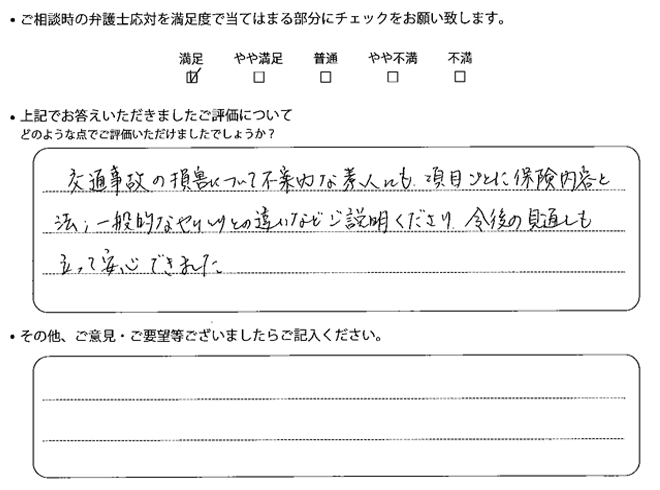 ・ご相談時の弁護士応対を満足度で当てはまる部分にチェックをお願い致します。
満足 やや満足 普通 やや不満 不満
☑ □ □ □ □
・上記でお答えいただきましたご評価について
どのような点でご評価いただけましたでしょうか?
交通事故の損害について不案内な素人にも、項目ごとに保険内容と
法、一般的なやりとりとの違いなどご説明くださり、今後の見通しも
立って安心できました
・その他、ご意見・ご要望等ございましたらご記入ください。